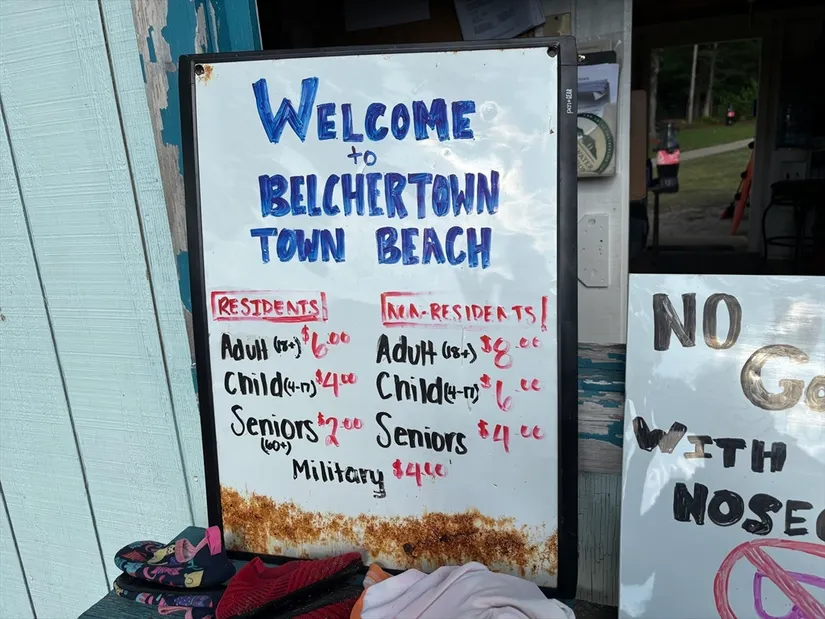 WELCOME
to
BELCHERTOWN
TOWN BEACH
RESIDENTS
Adult (18+) $6.00
Child (4-17) $4.00
Seniors $2.00
(60+)
NON-RESIDENTS
Adult (18+) $8.00
Child (4-17) $6.00
Seniors $4.00
Military $4.00
NO
WITH